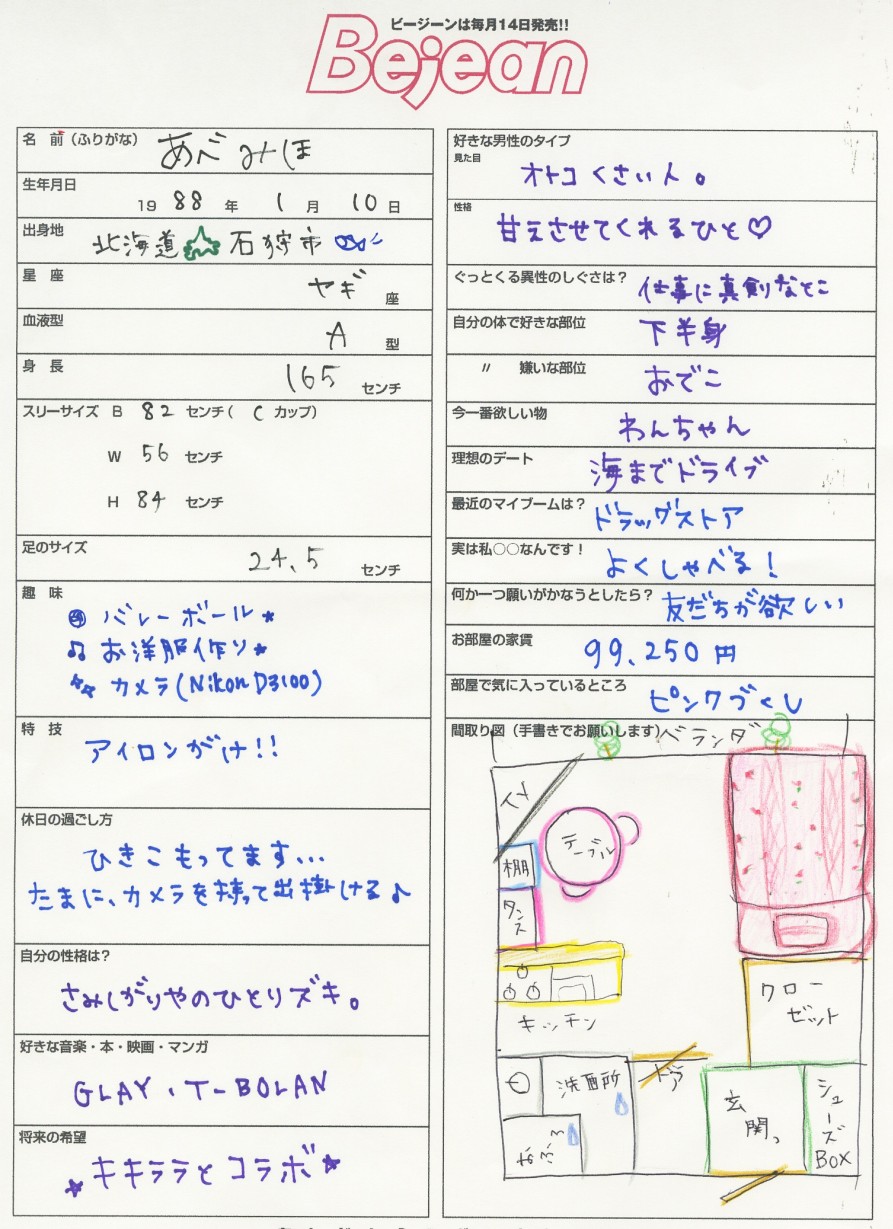 ビージーンは毎月14日発売!!
Bejean
名 前(ふりがな) あべ みほ
生年月日
1988年 1月 10日
出身地 北海道 石狩市
星 座 ヤギ座
血液型 A型
身 長 165センチ
スリーサイズ B 82センチ( Cカップ)
W 56センチ
H 84センチ
足のサイズ 24.5センチ
趣 味
バレーボール
お洋服作り
カメラ(Nikon D3100)
特 技
アイロンがけ!!
休日の過ごし方
ひきこもってます…
たまに、カメラを持って出掛ける♪
自分の性格は?
さみしがりやのひとりズキ。
好きな音楽・本・映画・マンガ
GLAY、T-BOLAN
将来の希望
☆キキララとコラボ☆
好きな男性のタイプ
見た目 オトコくさい人。
性格 甘えさせてくれるひと♡
ぐっとくる異性のしぐさは? 仕事に真剣なとこ
自分の体で好きな部位 下半身
〃 嫌いな部位 おでこ
今一番欲しい物 わんちゃん
理想のデート 海までドライブ
最近のマイブームは? ドラッグストア
実は私○○なんです! よくしゃべる!
何か一つ願いがかなうとしたら? 友だちが欲しい
お部屋の家賃 99.250円
部屋で気に入っているところ ピンクづくし
間取り図(手書きでお願いします)
ベランダ
TV
テーブル
棚
タンス
キッチン
クローゼット
洗面所
ドア
おふろ
玄関
シューズBOX